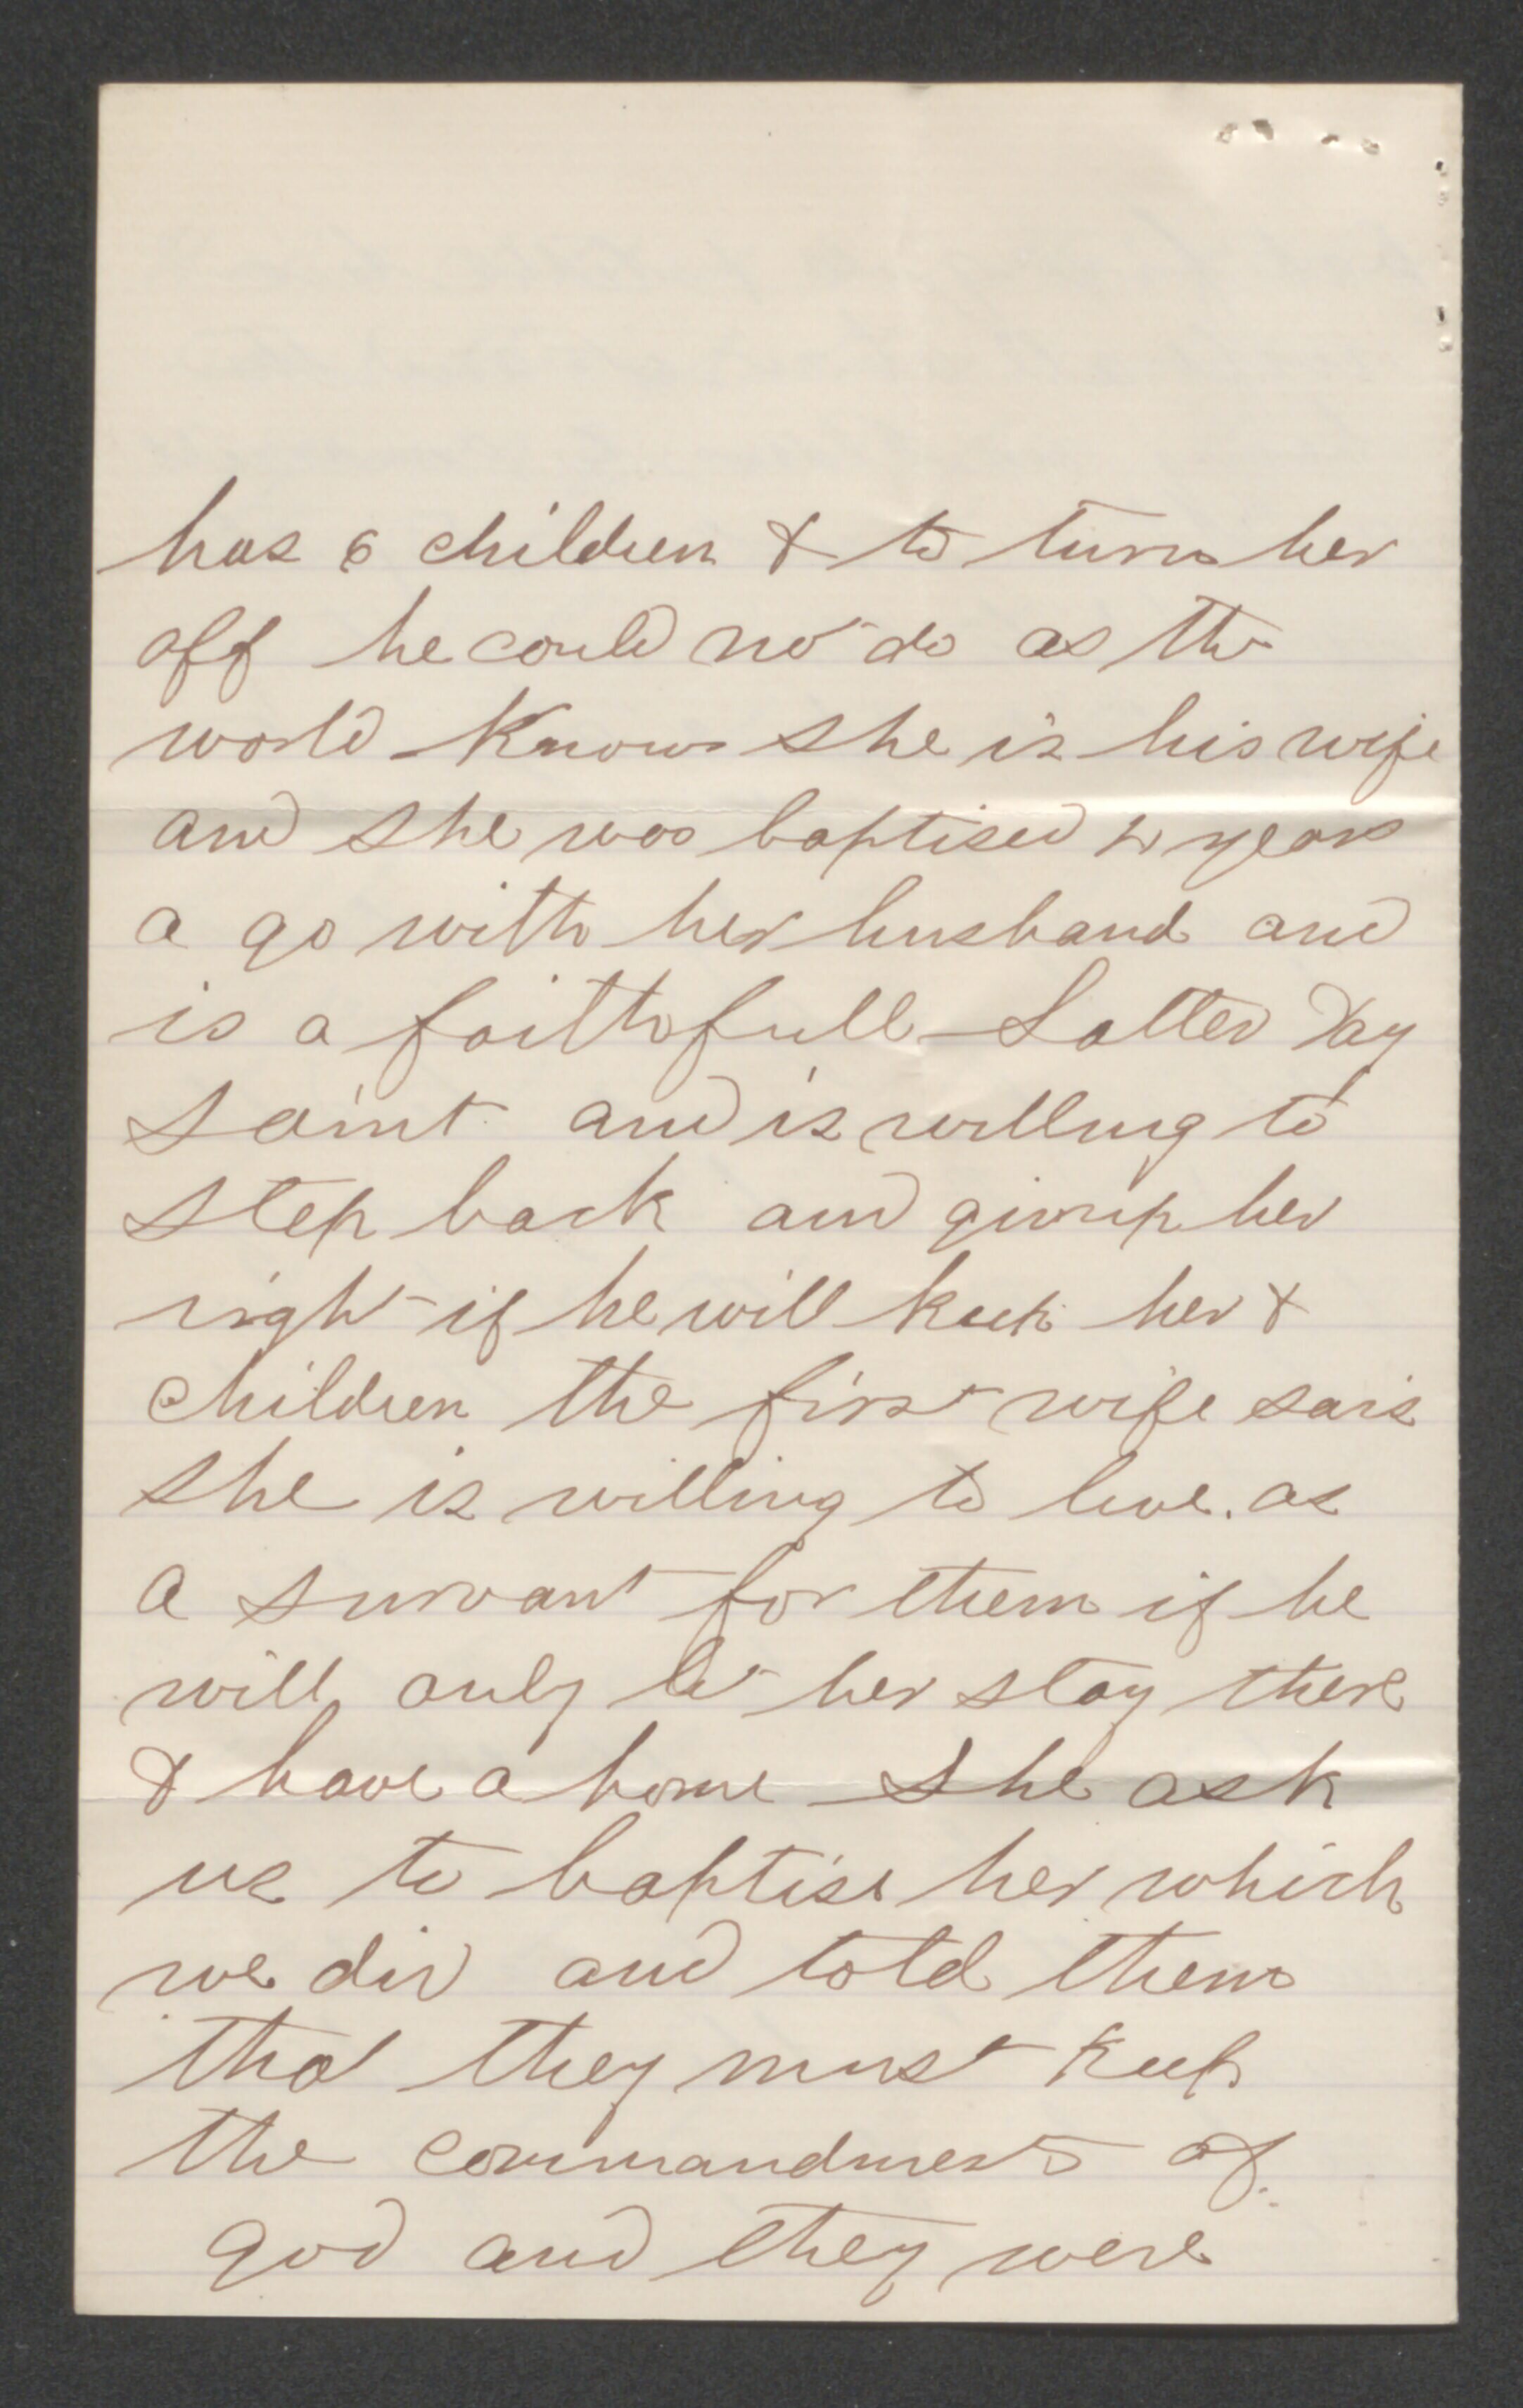 has 6 children & to turn her
off he could not do as the
world Knows she is his wife
and she was baptised 2 years
a go with her husband and
is a faithfull Latter Day
Saint and is willing to
step back and give up her
right if he will keep her &
children the first wife sais
she is willing to live as
a survant for them if he
will only let her stay there
& have a home She ask
us to baptise her which
we did and told them
that they must keep
the commandments of
god and they were